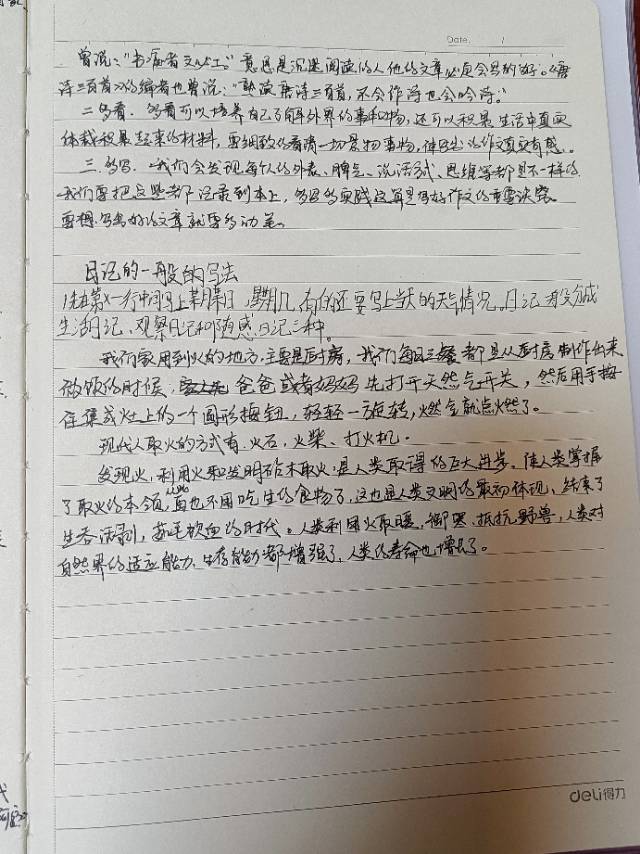 Date. /
曾说："书痴者文必工。"意思是沉迷阅读的人他的文章必定会写的好。《唐
诗三百首》的编者也曾说："熟读唐诗三百首,不会作诗也会吟诗。"
二.多看. 多看可以培养自己了解外界的事和物,还可以积累生活中真实
体裁积累起来的材料,要细致的看清一切景物事物,使写出的作文真实有感。
三.多写. 我们会发现每个人的外表、脾气、说话方式、思维等都是不一样的
我们要把这些都记录到本上,多写多实践这算是写好作文的重要诀窍。
要想写出好的文章就要多动笔。
日记的一般的写法
1.先在第一行中间写上某月某日,星期几,有的还要写上当天的天气情况。日记一般分成
生活日记、观察日记和随感日记三种。
我们家用到火的地方.主要是厨房,我们每日三餐都是从厨房制作出来
做饭的时候 爸爸或者妈妈先打开天然气开关,然后用手按
在集成灶上的一个圆形按钮,轻轻一旋转,燃气就点燃了。
现代人取火的方式有火石,火柴、打火机。
发现火,利用火和发明钻木取火,是人类取得的巨大进步。使人类掌握
了取火的本领,人类再也不用吃生的食物了,这也是人类文明的最初体现,结束了
生吞活剥,茹毛饮血的时代。人类利用火取暖,御寒.抵抗野兽,人类对
自然界的适应能力、生存能力都增强了,人类的寿命也增长了。
deli得力